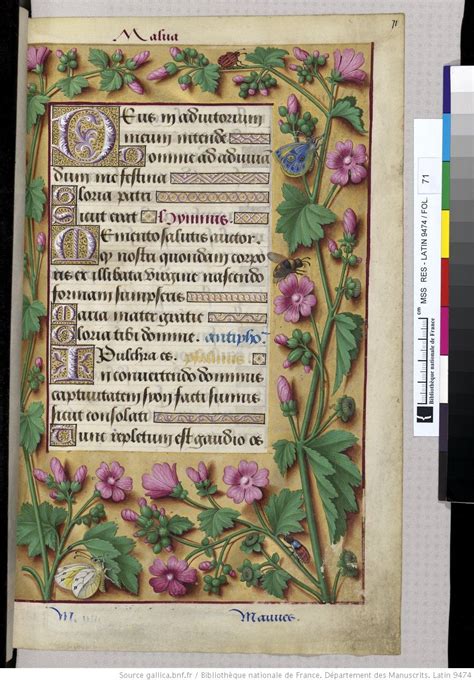 Malva
71
Deus in adiutorium
meum intende
Domine ad adiuvan
dum me festina
Gloria patri
Sicut erat Hymnus
Memento salutis auctor
q nostri quondam corpo
ris ex illibata virgine nascendo
formam sumpseris
Maria mater gratie
Gloria tibi domine. antipho
Pulchra es.
In convertendo dominus
captivitatem syon facti sumus
sicut consolati
Tunc repletum est gaudio os
Mauves
MSS RES - LATIN 9474 / FOL. 71
Bibliothèque nationale de France
Source gallica.bnf.fr / Bibliothèque nationale de France. Département des Manuscrits. Latin 9474